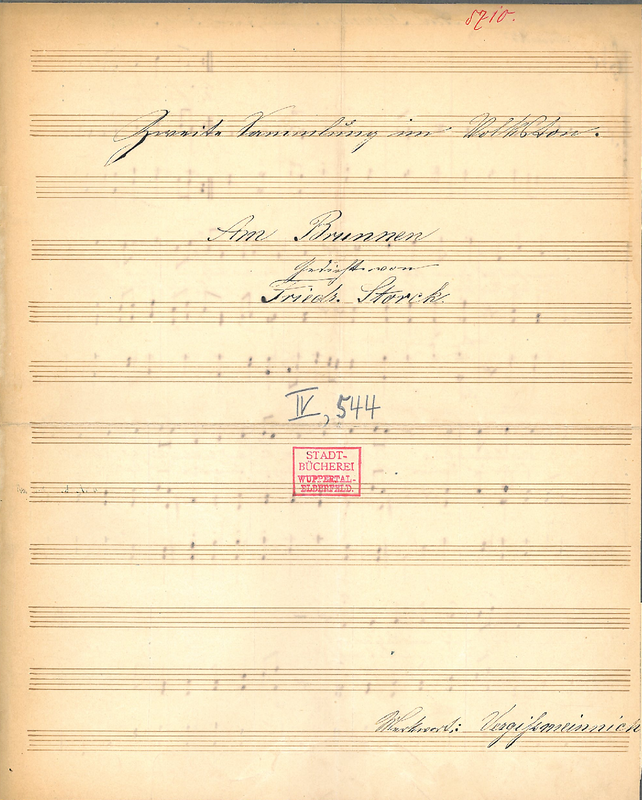 5710.
Zweite Sammlung im Volkston.
Am Brunnen
Gedicht von
Friedr. Storck.
IV, 544
STADT-
BÜCHEREI
WUPPERTAL-
ELBERFELD.
Merkwort: Vergißmeinnich